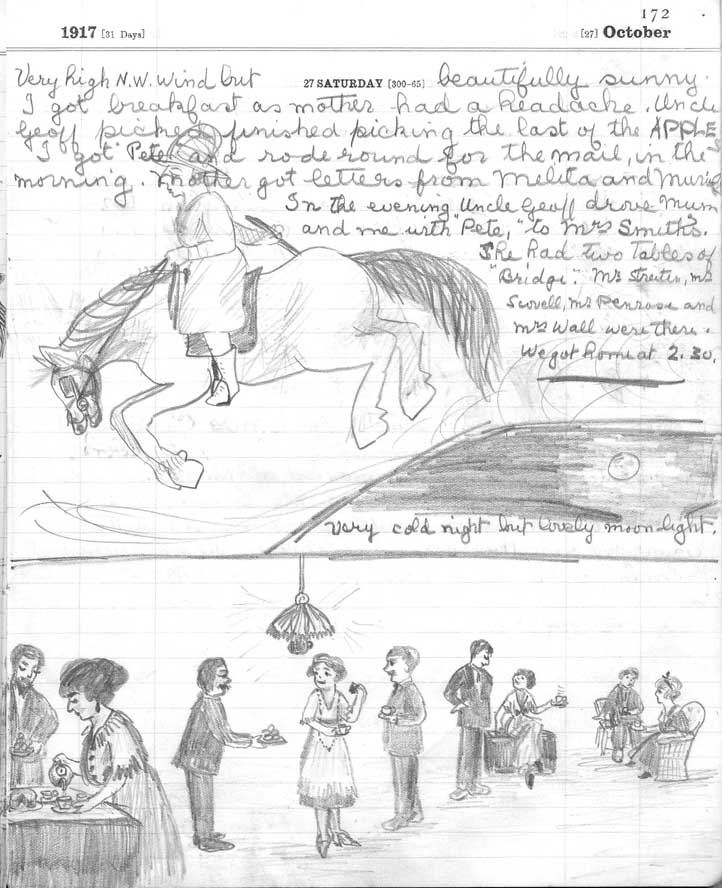 172
1917 [31 Days] [27] October
Very high N.W. wind but 27 SATURDAY [300-65] beautifully sunny.
I got breakfast as mother had a headache. Uncle
Geoff picked finished picking the last of the APPLES
I got "Pete" and rode round for the mail, in the
morning. Mother got letters from Melita and Muriel
In the evening Uncle Geoff drove Mum
and me with "Pete," to Mrs Smiths.
She had two Tables of
"Bridge". Mrs Mrs
Scovell, Mr Penrose and
Mrs Wall were there.
We got home at 2.30.
Very cold night but lovely moon-light.